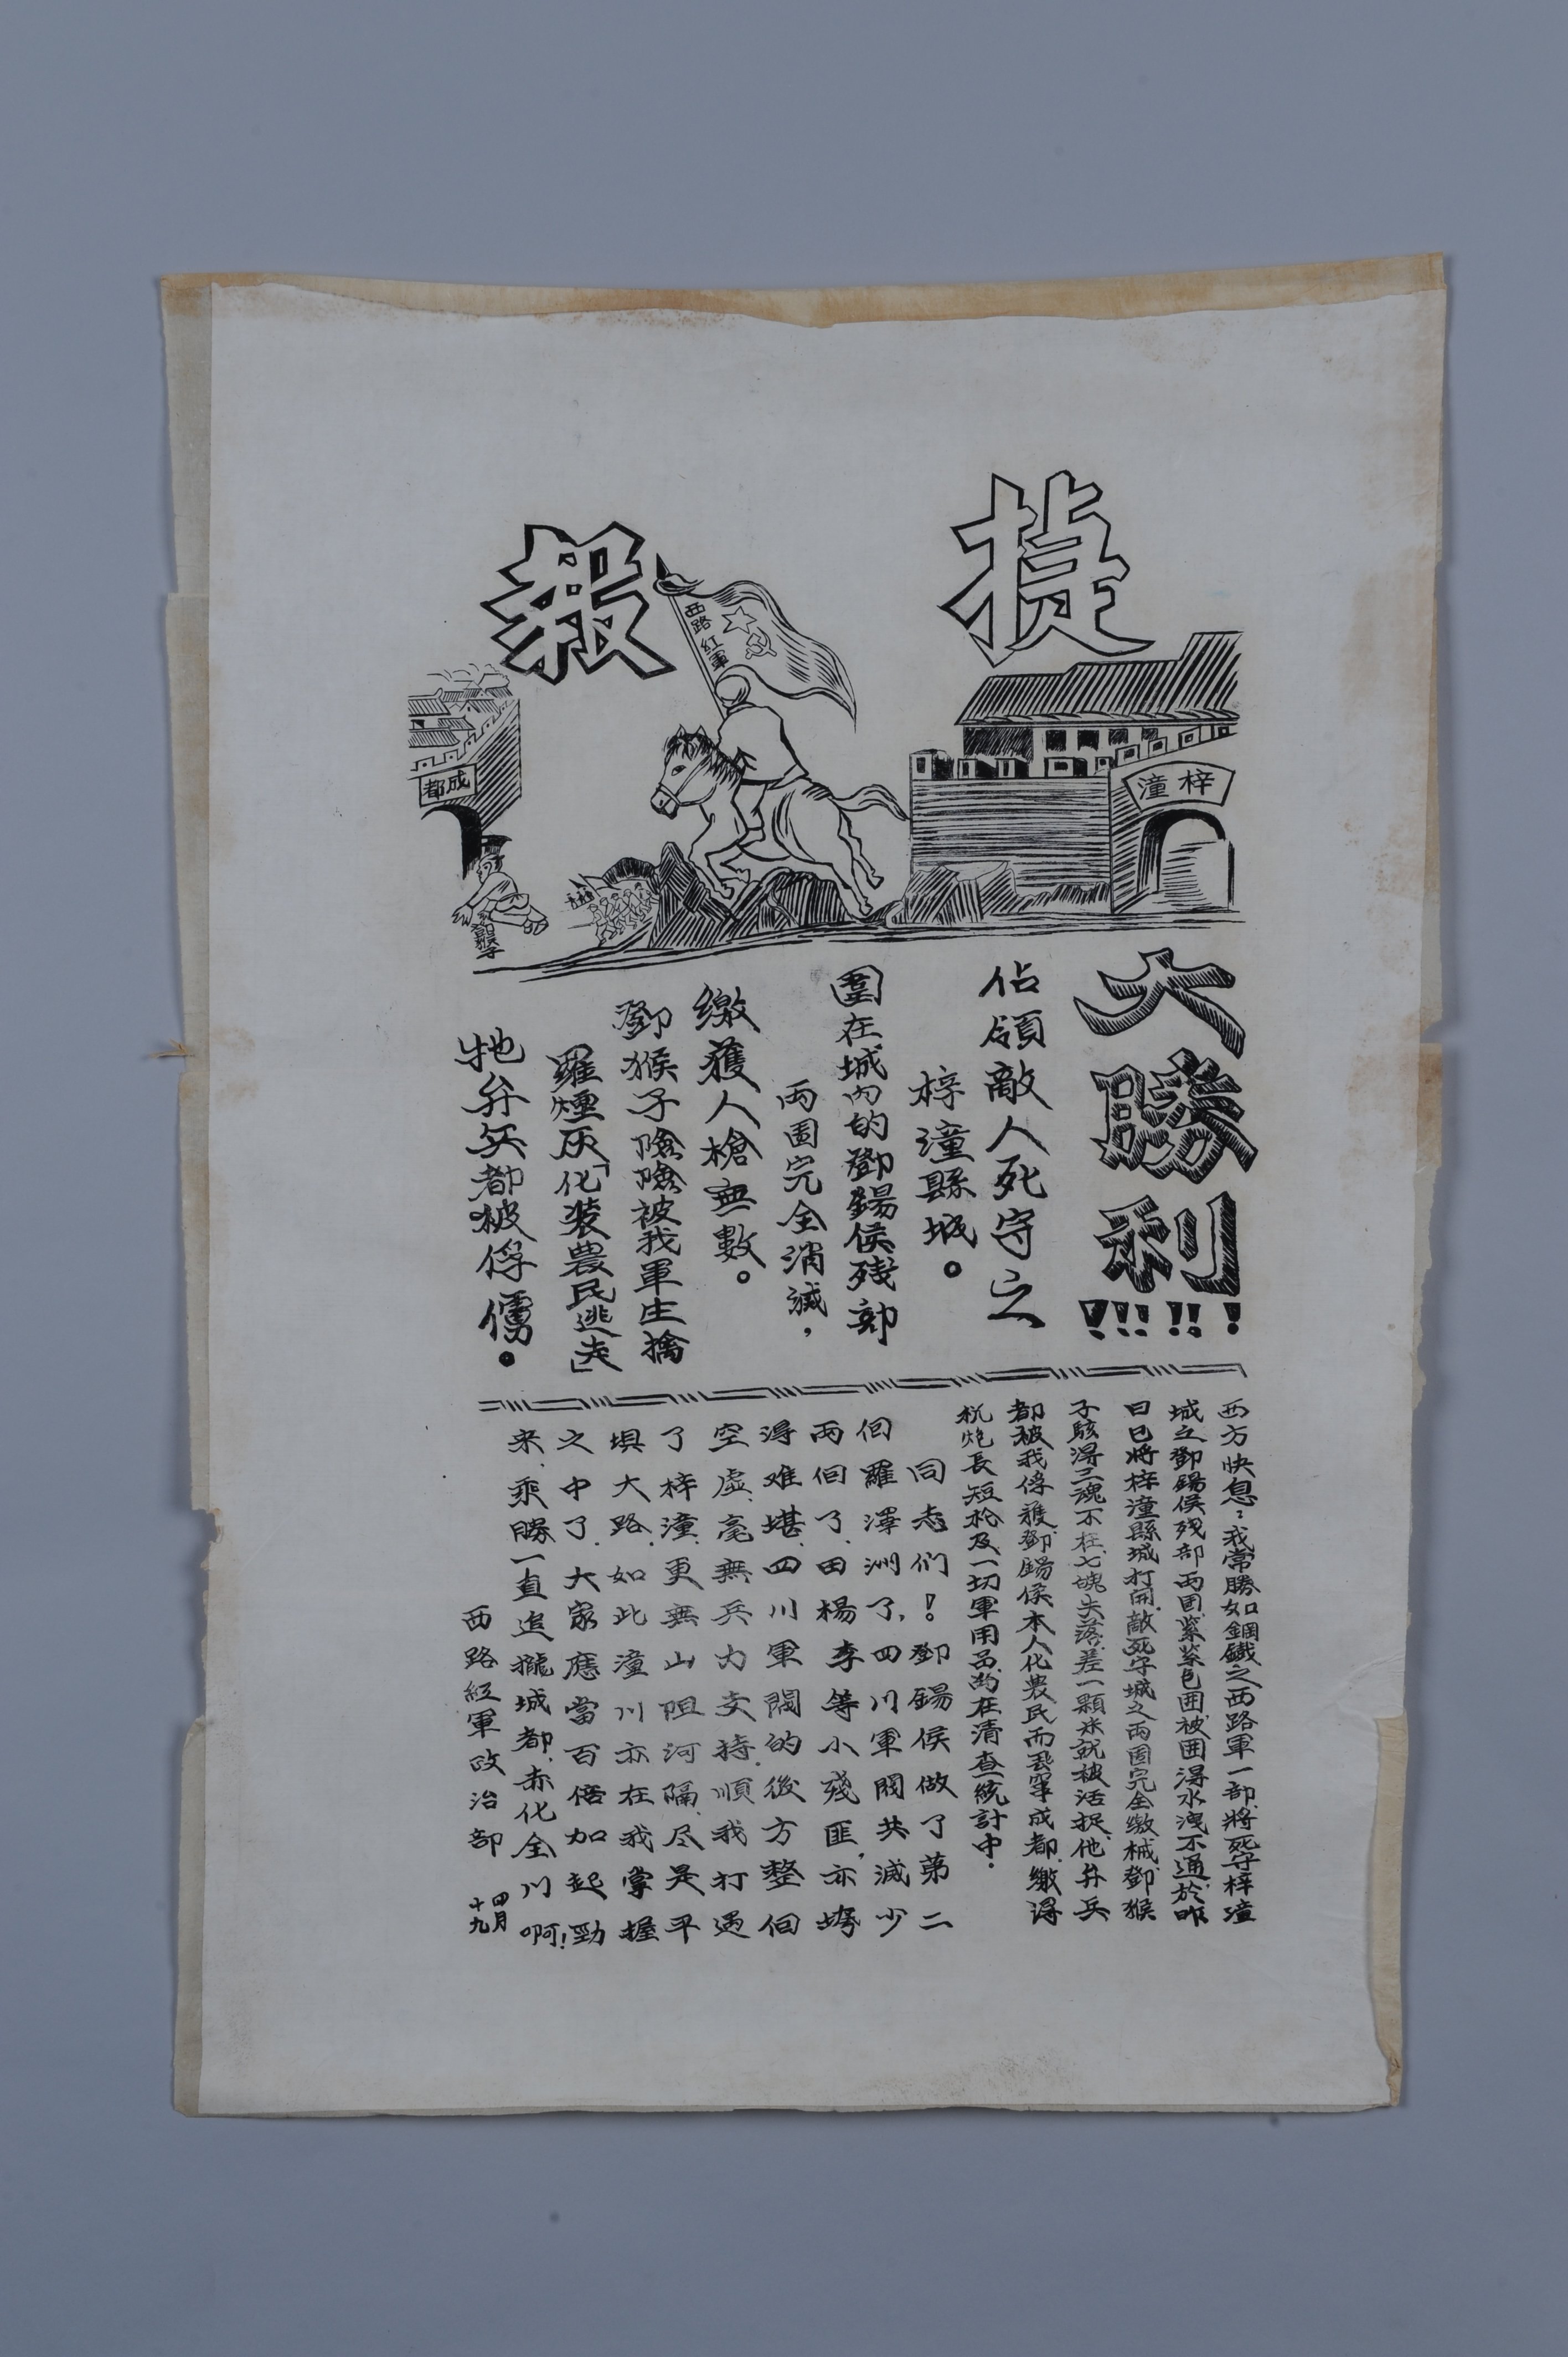 捷報
西路紅軍
梓潼
成都
鄧猴子
大勝利!!!!!!
佔領敵人死守之
梓潼縣城。
圍在城內的鄧錫侯殘部
兩團完全消滅，
繳獲人槍無數。
鄧猴子險險被我軍生擒
羅煙灰「化装農民逃走」
他弁兵都被俘虜。
西方快息：我常勝如鋼鐵之西路軍一部、將死守梓潼
城之鄧錫侯殘部兩团緊緊包囲、被囲得水洩不通、於昨
日已將梓潼縣城打開、敵死守城之兩團完全繳械、鄧猴
子駭得三魂不在、七魄失落、差一顆米就被活捉、他弁兵
都被我俘獲、鄧錫侯本人化農民而丟寧成都、繳得
机炮長短枪及一切軍用品、均在清查統計中。
同志们！鄧錫侯做了第二
個羅澤洲了，四川軍閥共減少
兩個了、田楊李等小殘匪、亦垮
得难堪、四川軍閥的後方整個
空虛、毫無兵力支持、順我打過
了梓潼、更無山阻河隔、尽是平
埧大路、如此潼川亦在我掌握
之中了、大家應當百倍加起勁
来、乘勝一直追攏城都、赤化全川啊！
西路紅軍政治部
四月十九